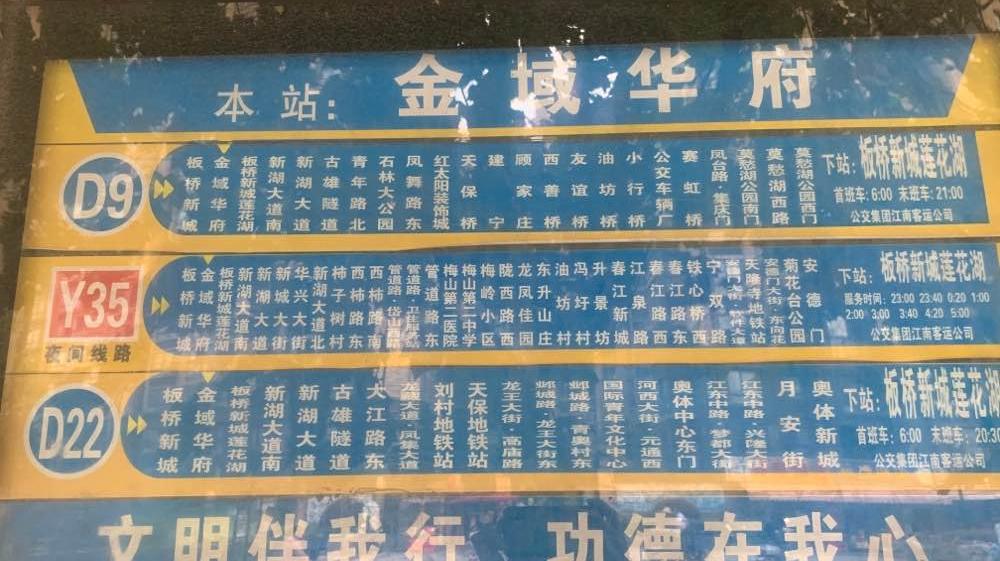 本站: 金域华府
D9
板桥新城
金域华府
板桥新城莲花湖
新湖大道南
新湖大道
古雄隧道
青年路北
石林大公园
凤舞路东
红太阳装饰城
天保桥
建宁
顾家庄
西善桥
友谊桥
油坊桥
小行桥
公交车辆厂
赛虹桥
凤台路·集庆门
莫愁湖公园南门
莫愁湖西路
莫愁湖公园西门
下站: 板桥新城莲花湖
首班车: 6:00 末班车: 21:00
公交集团江南客运公司
Y35
夜间线路
板桥新城
金域华府
板桥新城莲花湖
新湖大道南
新湖大道
新城大街
华兴大街
新湖大道北
柿子树村
西柿路东
西柿路南
管道路·岱山路
管道路东
梅山第二医院
梅山第二中学
梅岭小区
陇西路西
龙凤佳园
东升山庄
油坊村
冯圩村
升景坊
春江新城
江泉路
春江路西
春江路东
铁心桥西
宁双路
天隆寺地铁站
安德门大街·东向花
菊花台公园
安德门
下站: 板桥新城莲花湖
服务时间: 23:00 23:40 0:20 1:00
2:00 3:00 3:40 4:20 5:00
公交集团江南客运公司
D22
板桥新城
金域华府
板桥新城莲花湖
新湖大道南
新湖大道
古雄隧道
大江路东
龙藏大道·凤集大道
刘村地铁站
天保地铁站
龙王大街·高庙路
邺城路·龙王大街东
邺城路·青奥村东
国际青年文化中心
河西大街·元通西
奥体中心东门
江东中路·梦都大街
江东中路·兴隆大街
月安街
奥体新城
下站: 板桥新城莲花湖
首班车: 6:00 末班车: 20:30
公交集团江南客运公司
文明伴我行 功德在我心